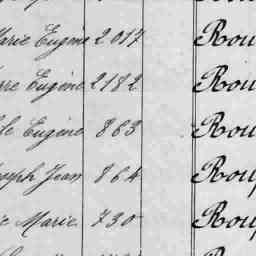 Marie Eugène 2017 Rou
Eugène 2182 Rou
Eugène 863 Rou
Joseph Jean 864 Roup
Marie 730 Roup